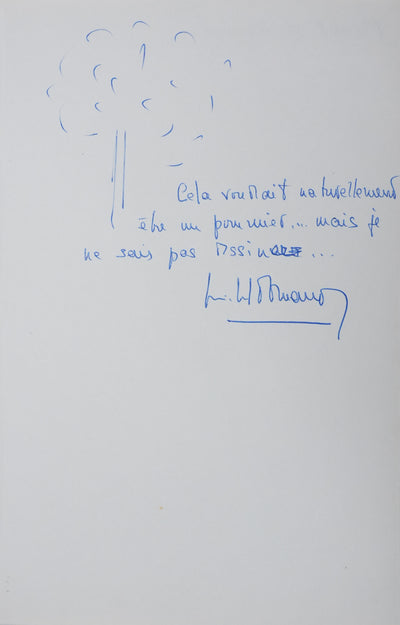 Cela voudrait naturellement
être un pommier... mais je
ne sais pas dessiner...